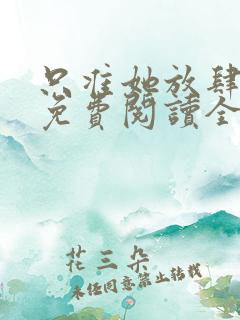 只准她放肆
免費閱讀全
花三朵
未經同意禁止轉載